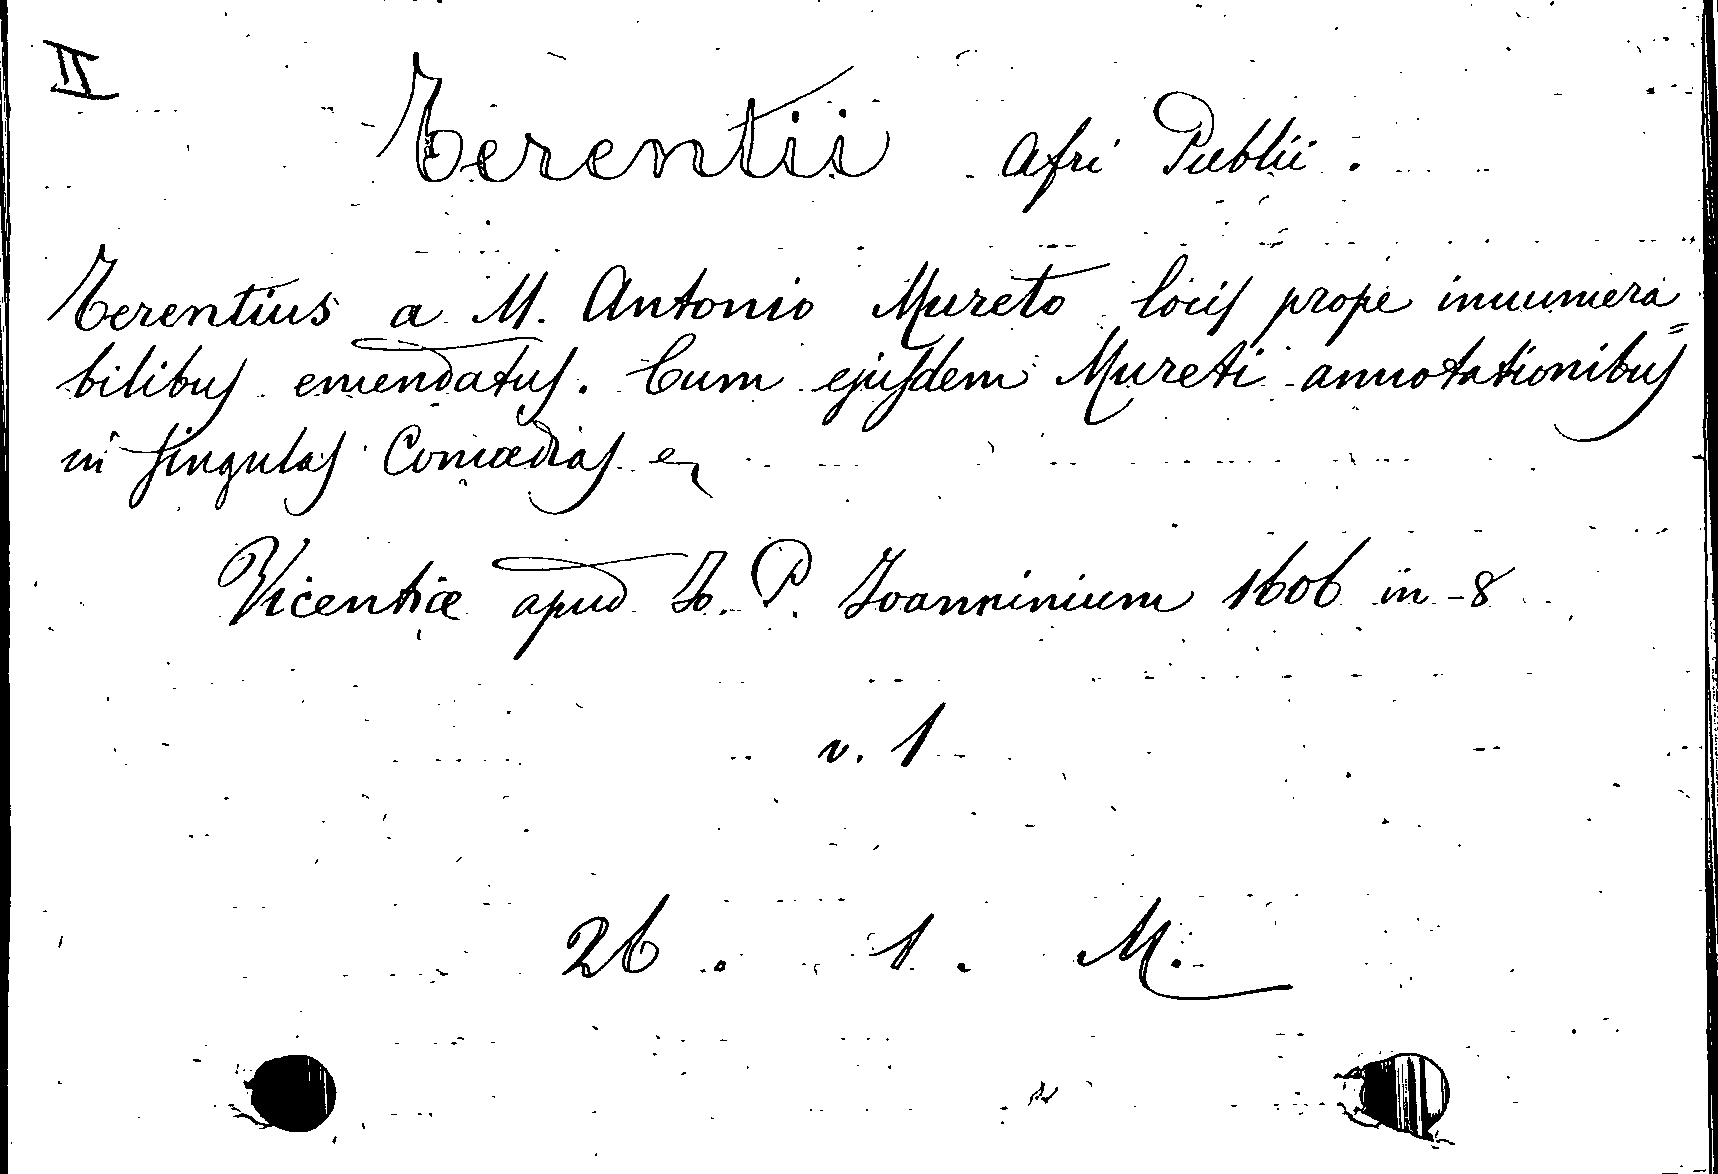 II
Terentii Afri Publii.
Terentius a M. Antonio Mureto locis prope innumera=
bilibus emendatus. Cum ejusdem Mureti annotationibus
in singulas Comœdias
Vicentiæ apud Jo. P. Joanninium 1606 in-8
v. 1
26. 1. M.